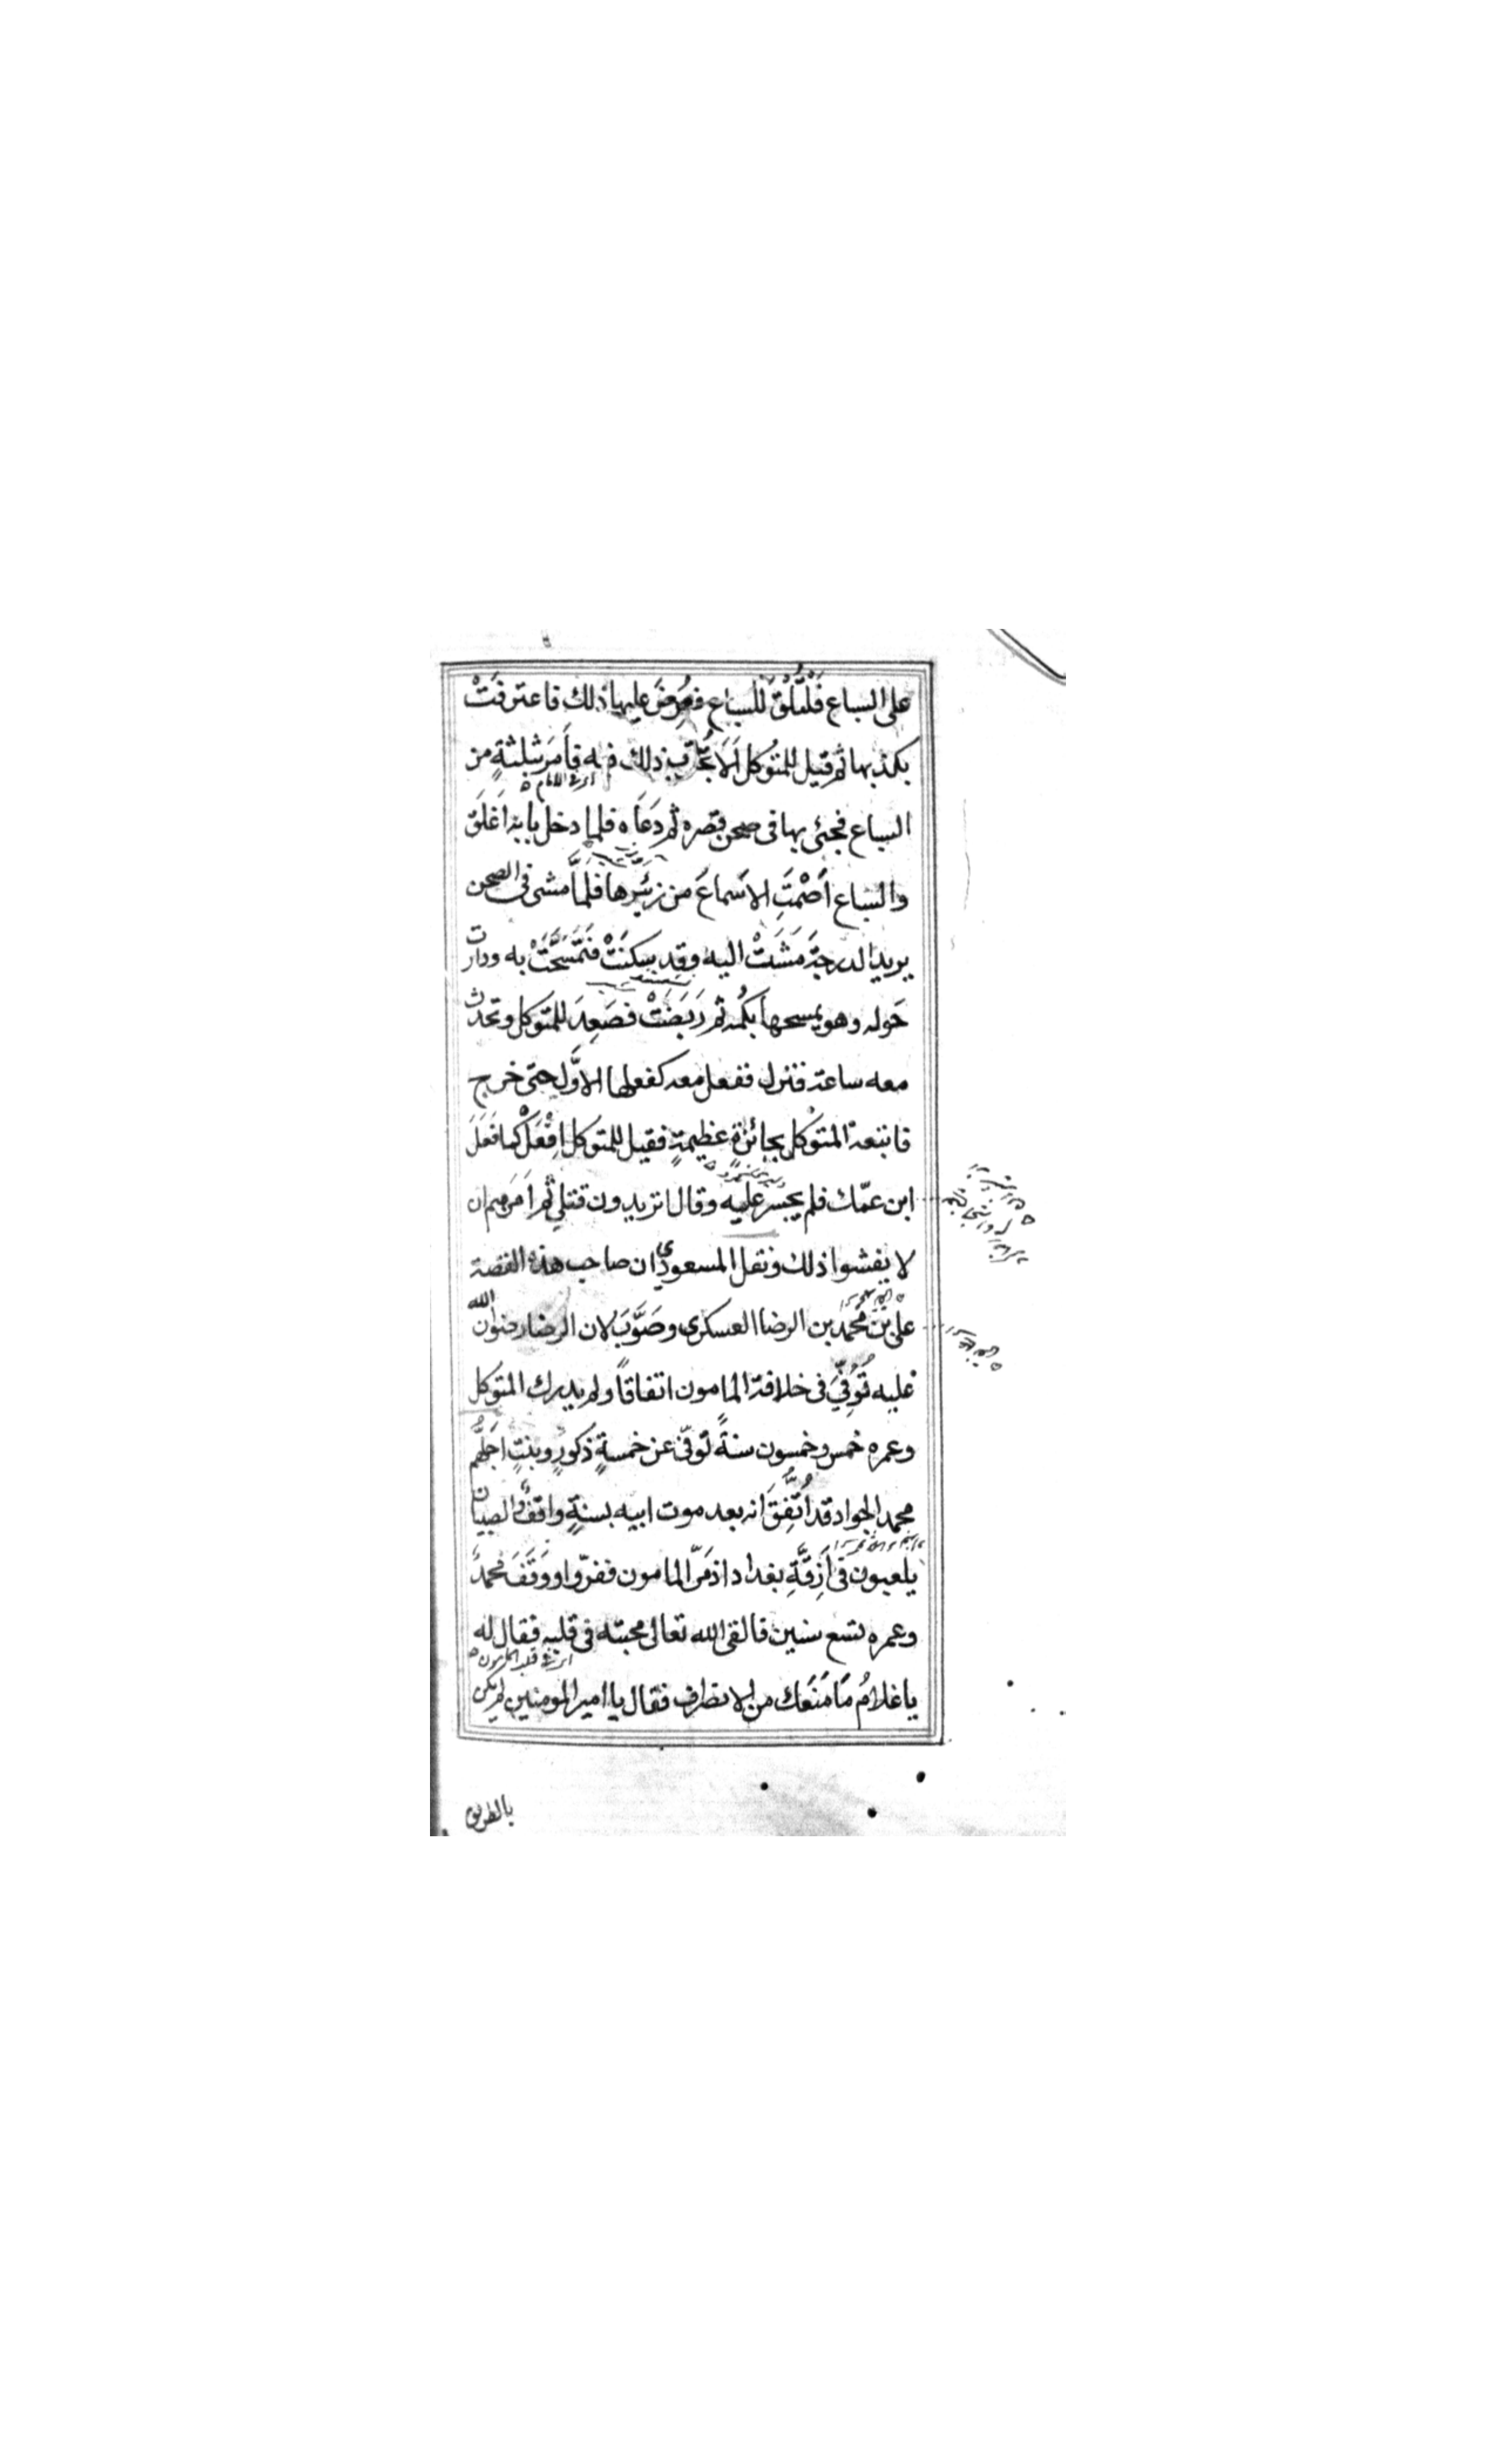 على السباع فَلْتُلْقَ للسباع فعُرِضَ عليها ذلك فاعترفَتْ
بكذبها ثم قيل للمتوكل اَلَا تُجَرِّب ذلك فيه فاَمَرَ بثلثةٍ من
اى فى الامام
السباع فجئ بها فى صحن قصره ثم دَعَاه فلما دخل بابه اَغلَقَ
والسباع اَصْمَتِ الاَسماعَ من زَئيرها فلمَّا مشى فى الصحن
يريد الدرجةَ مَشَتْ اليه وقد سكنَتْ فتَمَسَّحَتْ به ودارت
حَوله وهو يمسحها بكُمه ثم رَبَضَتْ فصَعِدَ للمتوكل وتحدث
معه ساعة فنزل ففعل معه كفعلها الاوّل حتى خرج
فاتبعه المتوكل بجائزةٍ عظيمةٍ فقيل للمتوكل اِفْعَلْ كما فَعَلَ
ابن عمّك فلم يجسر عليه وقال اتريدون قتلي ثم اَمَرَهم ان
لا يفشوا ذلك ونقل المسعودي ان صاحب هذه القصة
على بن محمد بن الرضا العسكرى وصَوَّبَ لان الرضا رضوان الله
عليه تُوُفِّيَ فى خلافة المامون اتفاقاً ولم يدرك المتوكل
وعمره خمس وخمسون سنةً توفّى عن خمسةٍ ذكورٍ وبنتٍ اجَلُّهم
محمد الجواد قد اُتُّفِقَ انه بعد موت ابيه بسنةٍ واقفٌ والصبيان
يلعبون فى اَزِقَّةِ بغداد اذ مَرّ المامون ففرّوا ووَقَفَ محمد
وعمره تسع سنين فالقى الله تعالى محبته فى قلبه فقال له
اى فى قلب المامون
يا غلامُ مَا مَنَعَك من الانصراف فقال يا امير المومنين لم يكن
بالطريق